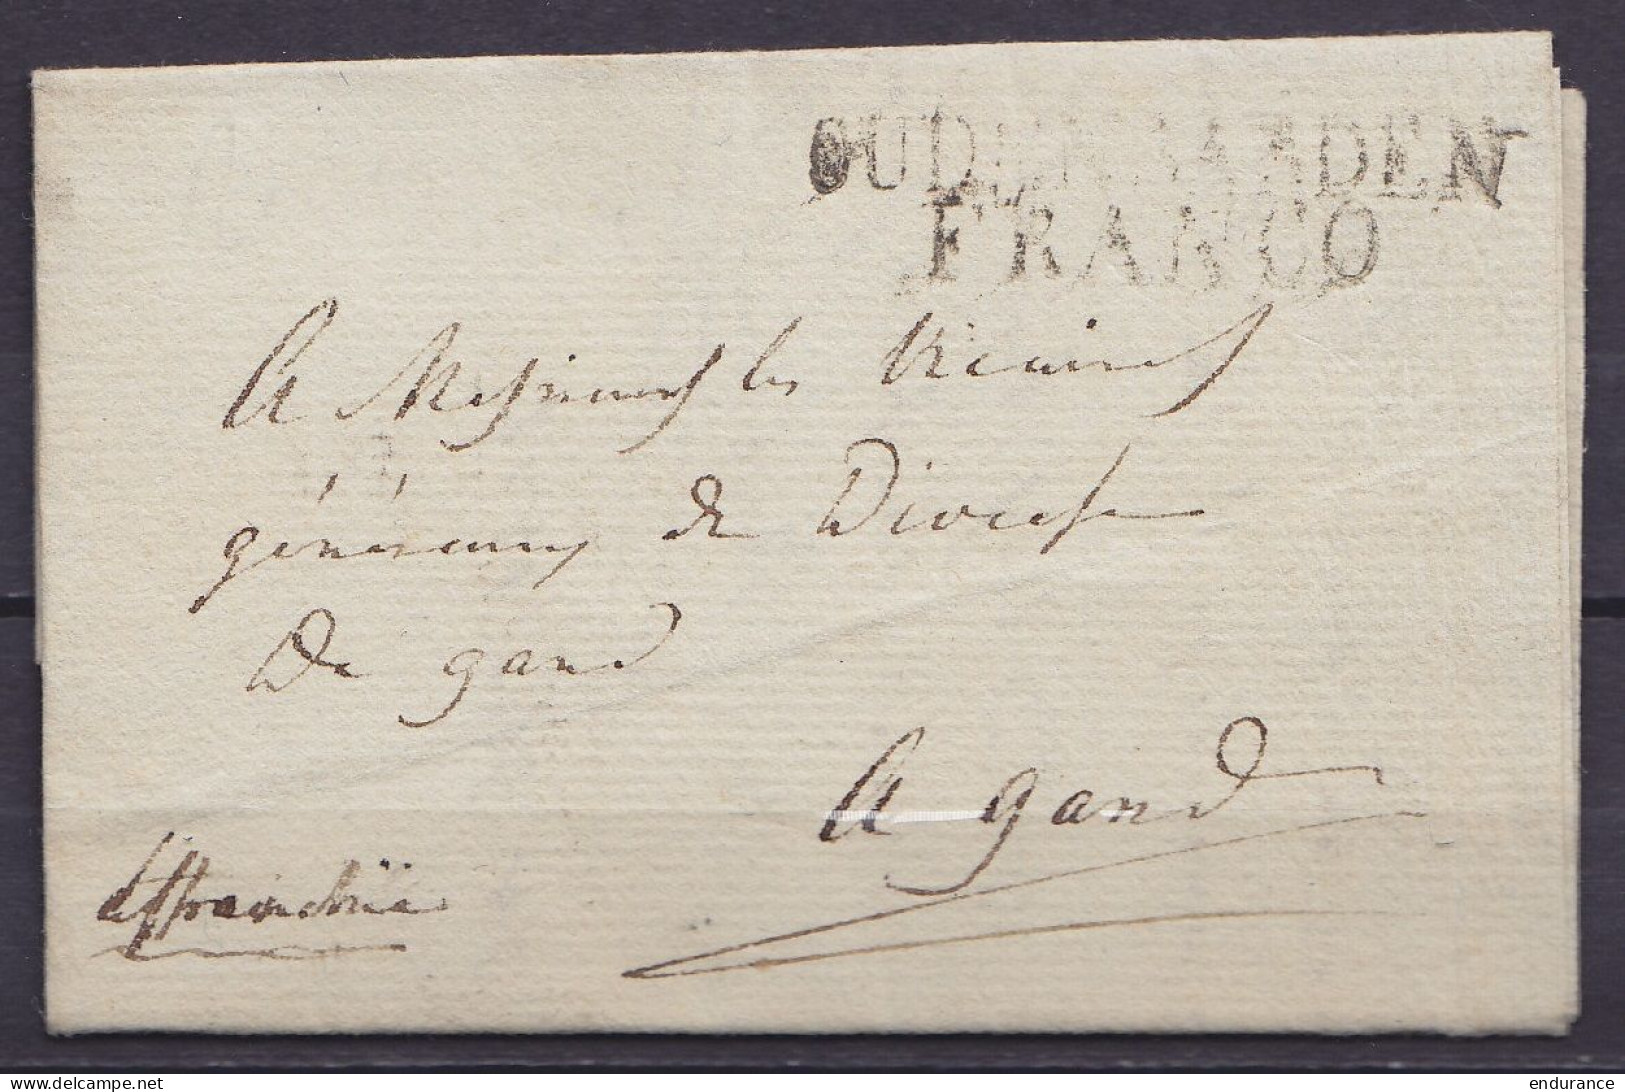 OUDENAARDEN
FRANCO
A Messieurs les Vicaires
généraux de Diocese
De gand
A gand
affranchie
delcampe.net
endurance